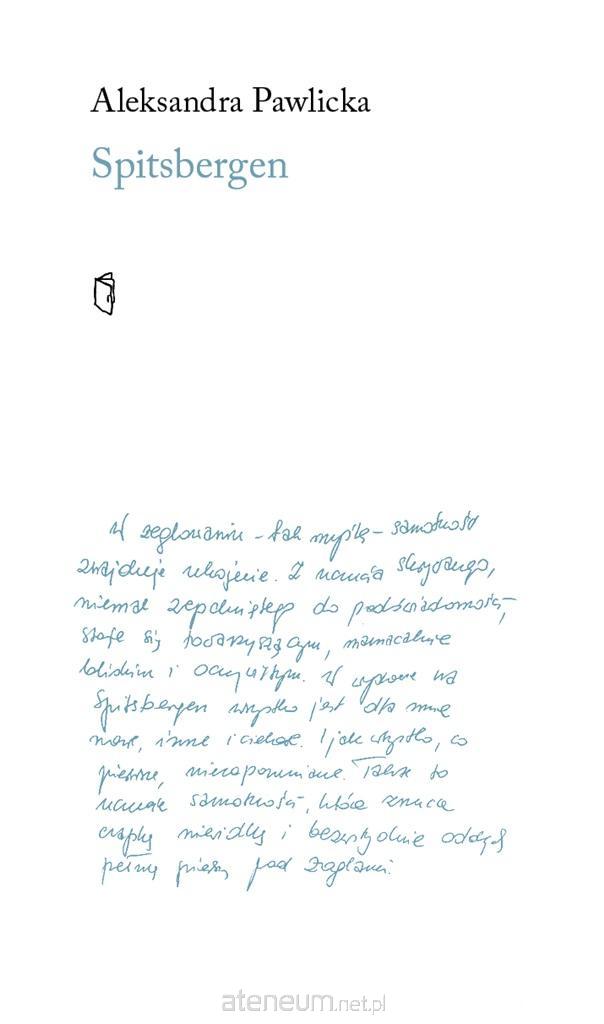 Aleksandra Pawlicka
Spitsbergen
W żeglowaniu – tak myślę – samotność
znajduje ukojenie. Z uczucia skrytego,
niemal zepchniętego do podświadomości,
staje się towarzyszącym, namacalnie
bliskim i oczywistym. W wyprawie na
Spitsbergen wszystko jest dla mnie
nowe, inne i ciekawe. I jak wszystko, co
pierwsze, niezapomniane. Także to
uczucie samotności, która zrzuca
czapkę niewidkę i bezwstydnie oddycha
pełną piersią pod żaglami.
ateneum.net.pl